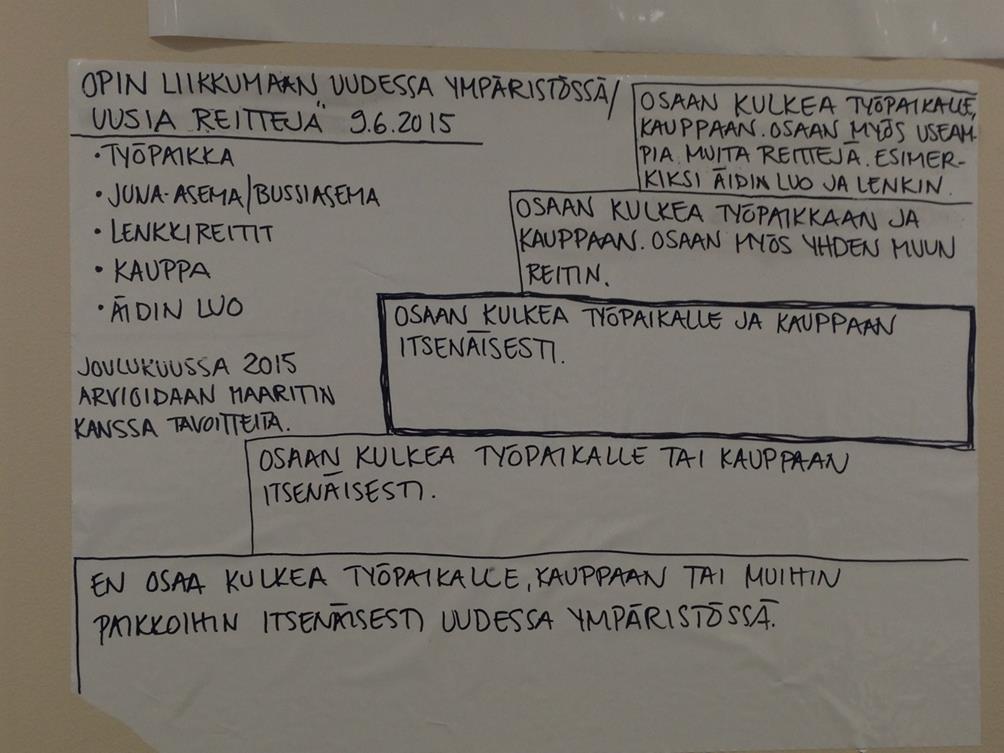 OPIN LIIKKUMAAN UUDESSA YMPÄRISTÖSSÄ/
UUSIA REITTEJÄ" 9.6.2015
• TYÖPAIKKA
• JUNA-ASEMA/BUSSIASEMA
• LENKKIREITIT
• KAUPPA
• ÄIDIN LUO
JOULUKUUSSA 2015
ARVIOIDAAN MAARITIN
KANSSA TAVOITTEITA.
OSAAN KULKEA TYÖPAIKALLE,
KAUPPAAN. OSAAN MYÖS USEAM-
PIA MUITA REITTEJÄ. ESIMER-
KIKSI ÄIDIN LUO JA LENKIN.
OSAAN KULKEA TYÖPAIKKAAN JA
KAUPPAAN. OSAAN MYÖS YHDEN MUUN
REITIN.
OSAAN KULKEA TYÖPAIKALLE JA KAUPPAAN
ITSENÄISESTI.
OSAAN KULKEA TYÖPAIKALLE TAI KAUPPAAN
ITSENÄISESTI.
EN OSAA KULKEA TYÖPAIKALLE, KAUPPAAN TAI MUIHIN
PAIKKOIHIN ITSENÄISESTI UUDESSA YMPÄRISTÖSSÄ.